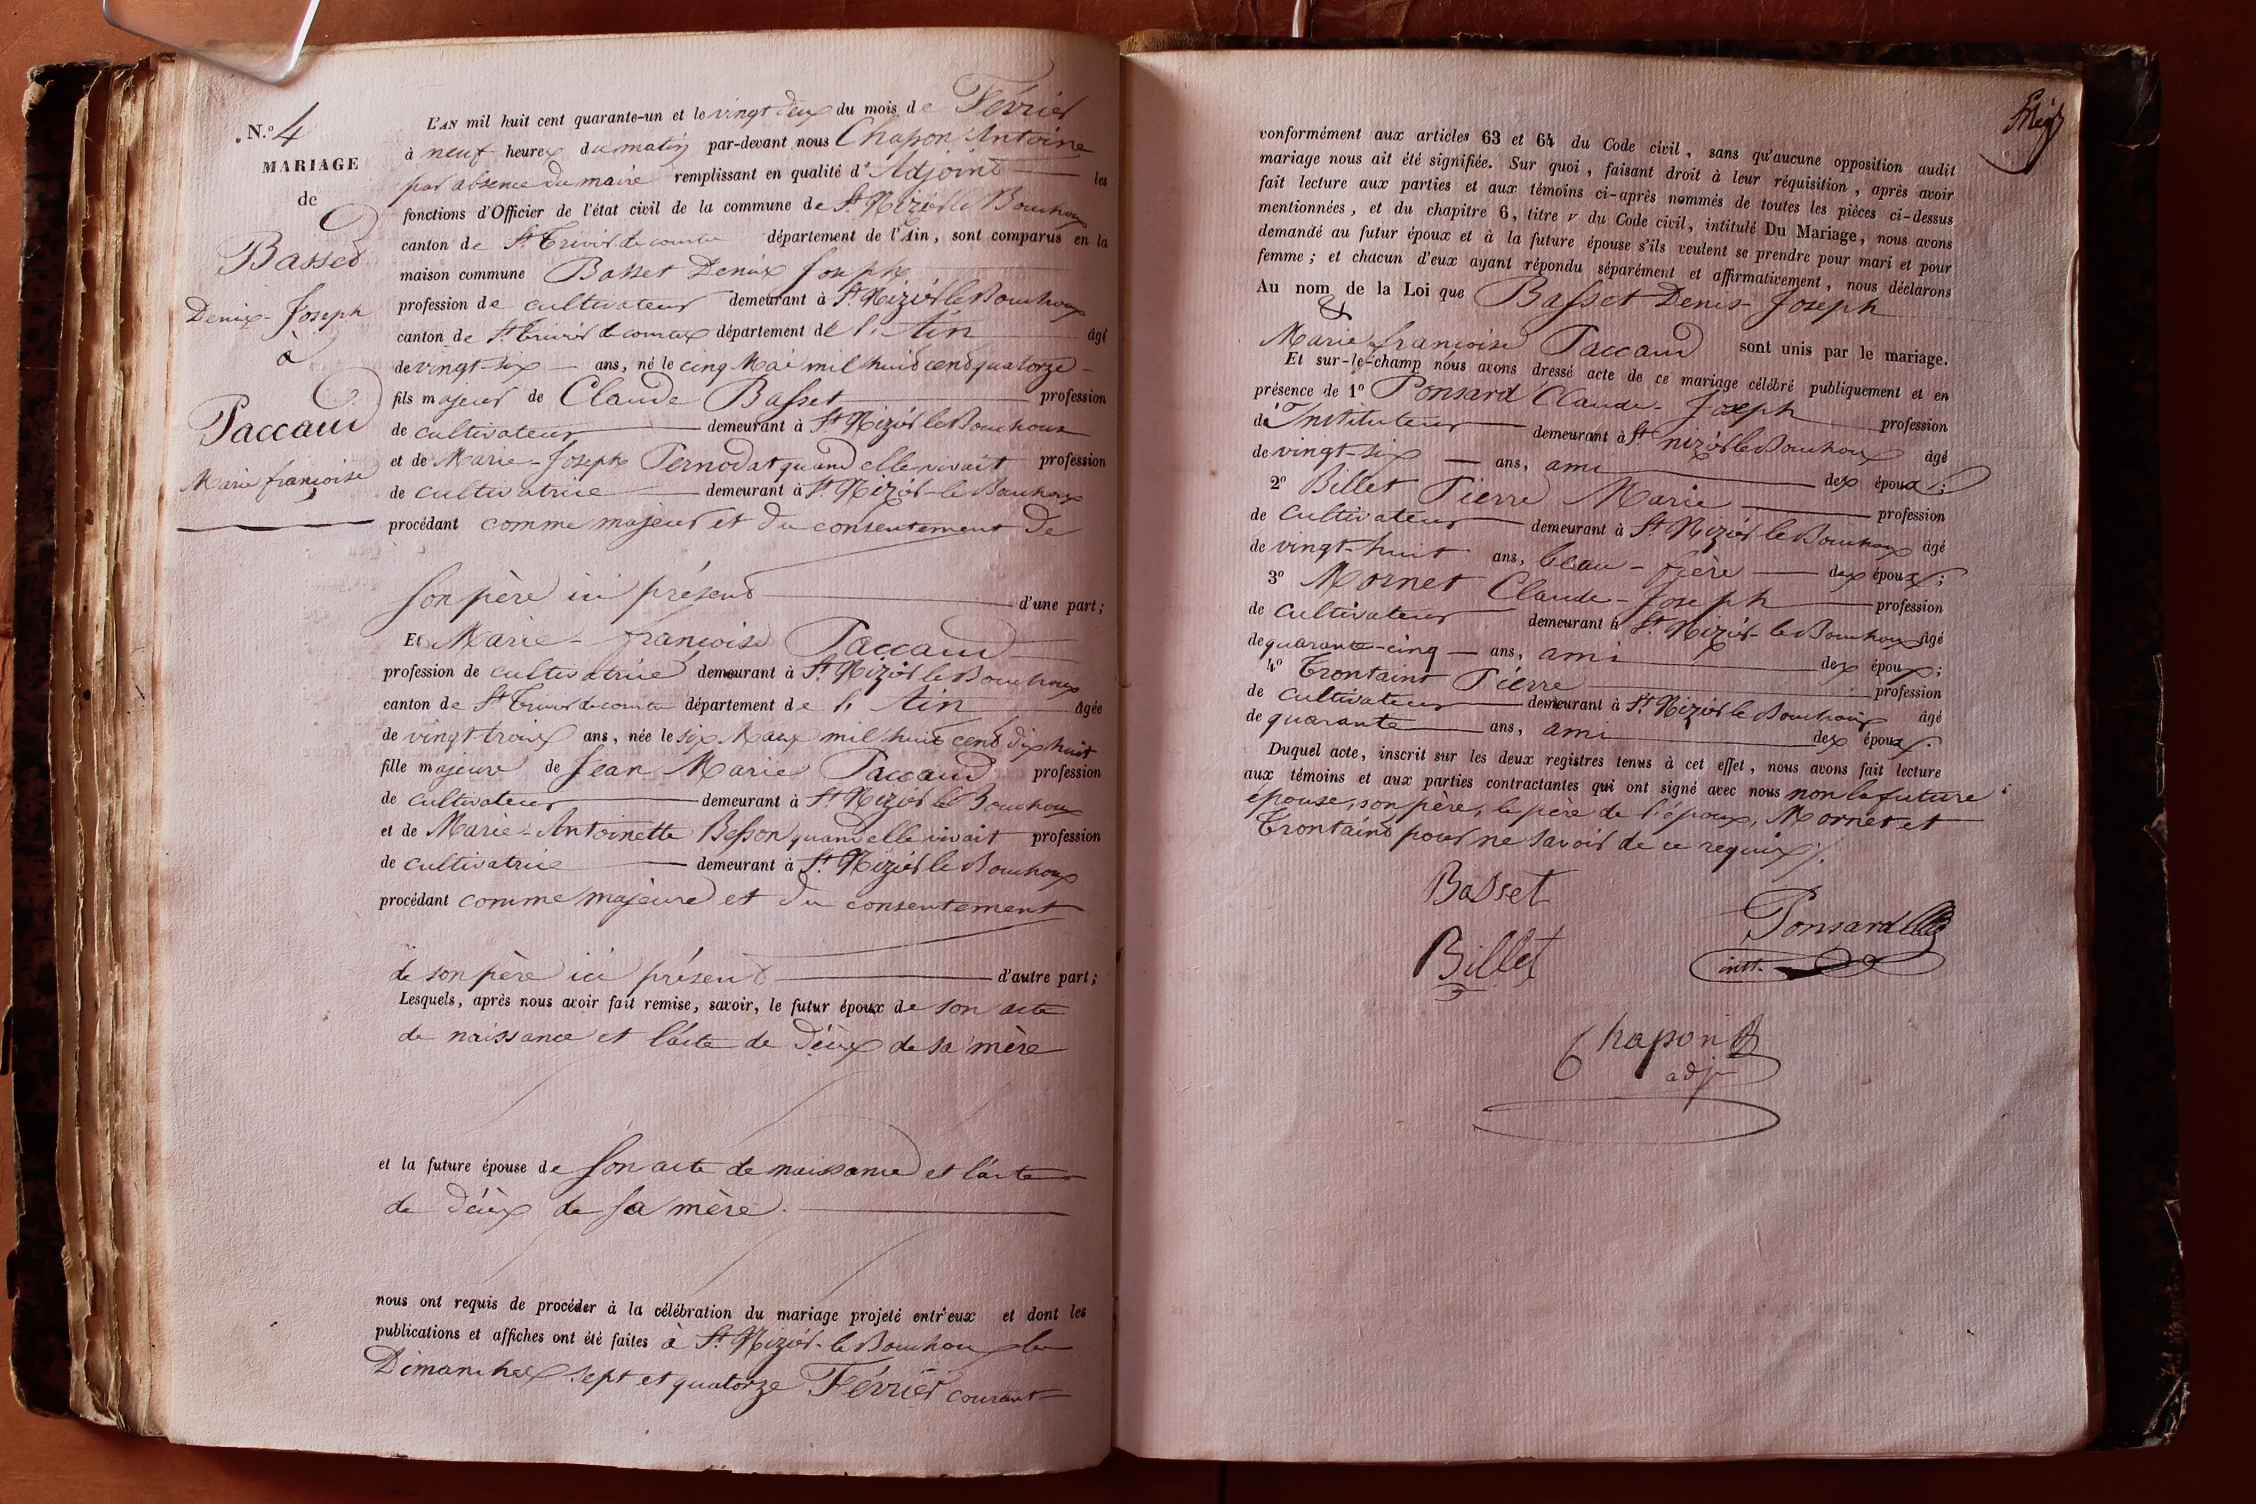 N.º 4
MARIAGE
de
Basset
Denix-Joseph
à
Paccaud
Marie françoise
L'AN mil huit cent quarante-un et le vingt deux du mois de Février
à neuf heures du matin par-devant nous Chapon Antoine
par absence du maire remplissant en qualité d'Adjoint les
fonctions d'Officier de l'état civil de la commune de St Nizier le Bouchoux
canton de St Trivier de courtes département de l'Ain, sont comparus en la
maison commune Basset Denix Joseph
profession de cultivateur demeurant à St Nizier le Bouchoux
canton de St Trivier de courtes département de l'Ain âgé
de vingt-six ans, né le cinq Mai mil huit cent quatorze
fils majeur de Claude Basset profession
de cultivateur demeurant à St Nizier le Bouchoux
et de Marie-Joseph Pernodat quand elle vivait profession
de cultivatrice demeurant à St Nizier-le Bouchoux
procédant comme majeur et du consentement De
son père ici présent d'une part;
Et Marie-françoise Paccaud
profession de cultivatrice demeurant à St Nizier le Bouchoux
canton de St Trivier de courtes département de l'Ain âgée
de vingt trois ans, née le six Mars mil huit cent dix huit
fille majeure de Jean Marie Paccaud profession
de cultivateur demeurant à St Nizier le Bouchoux
et de Marie-Antoinette Besson quand elle vivait profession
de cultivatrice demeurant à St Nizier le Bouchoux
procédant comme majeure et du consentement
de son père ici présent d'autre part;
Lesquels, après nous avoir fait remise, savoir, le futur époux de son acte
de naissance et l'acte de décès de sa mère
et la future épouse de son acte de naissance et l'acte
de décès de sa mère.
nous ont requis de procéder à la célébration du mariage projeté entr'eux et dont les
publications et affiches ont été faites à St Nizier-le Bouchoux les
Dimanches sept et quatorze Février courant
conformément aux articles 63 et 64 du Code civil, sans qu'aucune opposition audit
mariage nous ait été signifiée. Sur quoi, faisant droit à leur réquisition, après avoir
fait lecture aux parties et aux témoins ci-après nommés de toutes les pièces ci-dessus
mentionnées, et du chapitre 6, titre v du Code civil, intitulé Du Mariage, nous avons
demandé au futur époux et à la future épouse s'ils veulent se prendre pour mari et pour
femme; et chacun d'eux ayant répondu séparément et affirmativement, nous déclarons
Au nom de la Loi que Basset Denis-Joseph
&
Marie françoise Paccaud sont unis par le mariage.
Et sur-le-champ nous avons dressé acte de ce mariage célébré publiquement et en
présence de 1º Ponsard Claude-Joseph profession
d'Instituteur demeurant à St nizier le Bouchoux âgé
de vingt-six ans, ami des époux;
2º Billet Pierre Marie profession
de cultivateur demeurant à St Nizier le Bouchoux âgé
de vingt-huit ans, beau-frère des époux;
3º Mornet Claude-Joseph profession
de cultivateur demeurant à St Nizier-le Bouchoux âgé
de quarante-cinq ans, ami des époux;
4º Trontaint Pierre profession
de cultivateur demeurant à St Nizier le Bouchoux âgé
de quarante ans, ami des époux.
Duquel acte, inscrit sur les deux registres tenus à cet effet, nous avons fait lecture
aux témoins et aux parties contractantes qui ont signé avec nous non la future
épouse, son père, le père de l'époux, Mornet et
Trontaint pour ne savoir de ce requis.
Basset
Ponsard
instr.
Billet
Chapon
adj